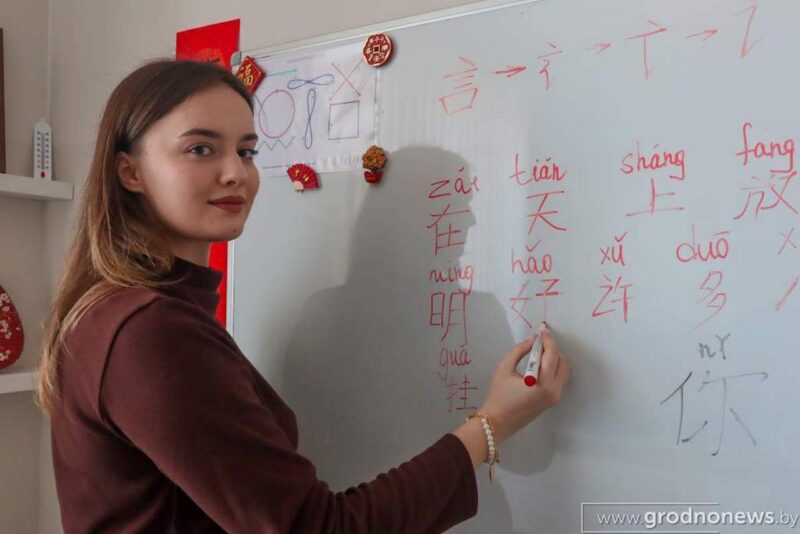 福
言 → → → 讠
zái tiān shàng fàng
在 天 上 放
míng hǎo xǔ duō
明 好 许 多
guà nǐ
挂 你
www.grodnonews.by